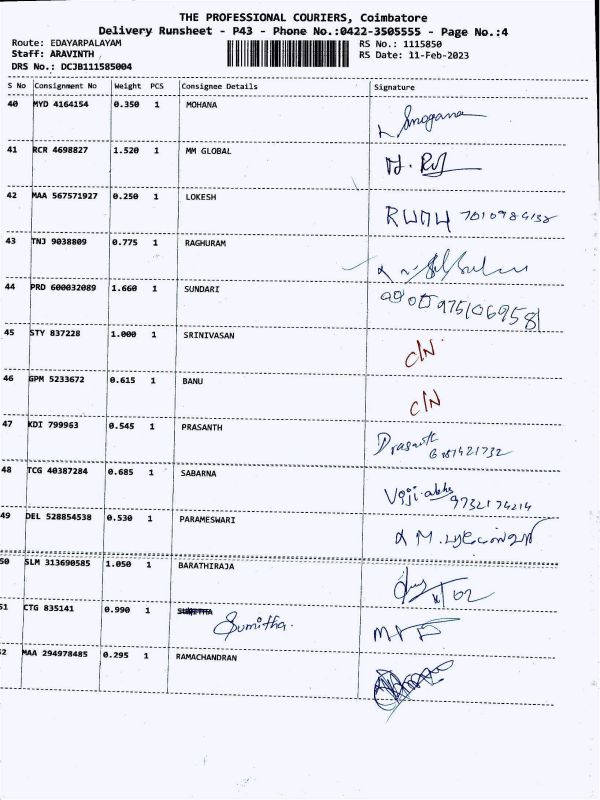 THE PROFESSIONAL COURIERS, Coimbatore
Delivery Runsheet - P43 - Phone No.:0422-3505555 - Page No.:4
Route: EDAYARPALAYAM RS No.: 1115850
Staff: ARAVINTH RS Date: 11-Feb-2023
DRS No.: DCJB111585004
S No Consignment No Weight PCS Consignee Details Signature
40 MYD 4164154 0.350 1 MOHANA
41 RCR 4698827 1.520 1 MM GLOBAL
42 MAA 567571927 0.250 1 LOKESH
43 TNJ 9038809 0.775 1 RAGHURAM
44 PRD 600032089 1.660 1 SUNDARI 9751069581
45 STY 837228 1.000 1 SRINIVASAN C/N
46 GPM 5233672 0.615 1 BANU C/N
47 KDI 799963 0.545 1 PRASANTH Prasanth
48 TCG 40387284 0.685 1 SABARNA
9732174214
49 DEL 528854538 0.530 1 PARAMESWARI
50 SLM 313690585 1.050 1 BARATHIRAJA
51 CTG 835141 0.990 1 Sumitha.
52 MAA 294978485 0.295 1 RAMACHANDRAN